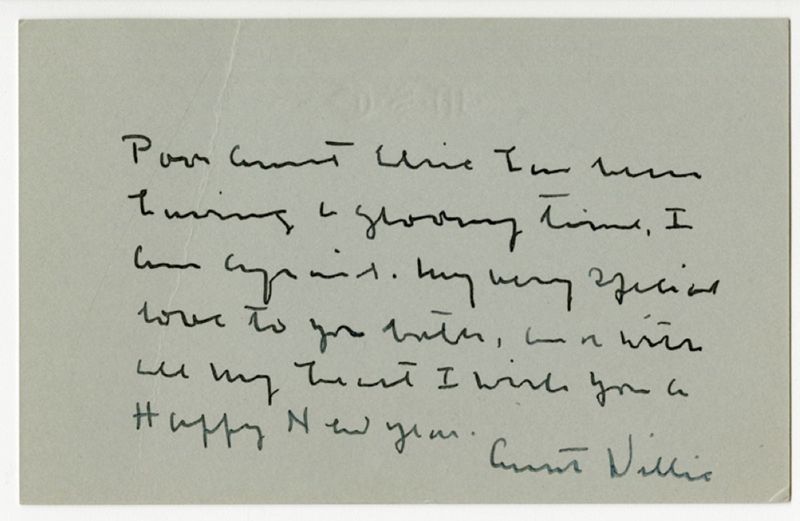 Poor Aunt Elsie has been
having a gloomy time, I
am afraid. My very special
love to you both, and with
all my heart I wish you a
Happy New Year.
Aunt Willie